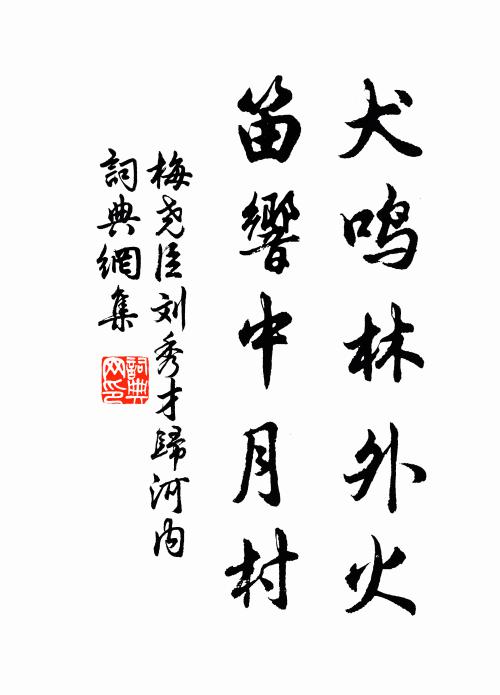 犬鳴林外火
笛響中月村
梅尧臣刘秀才歸河内
詞典網集
詞典
网印